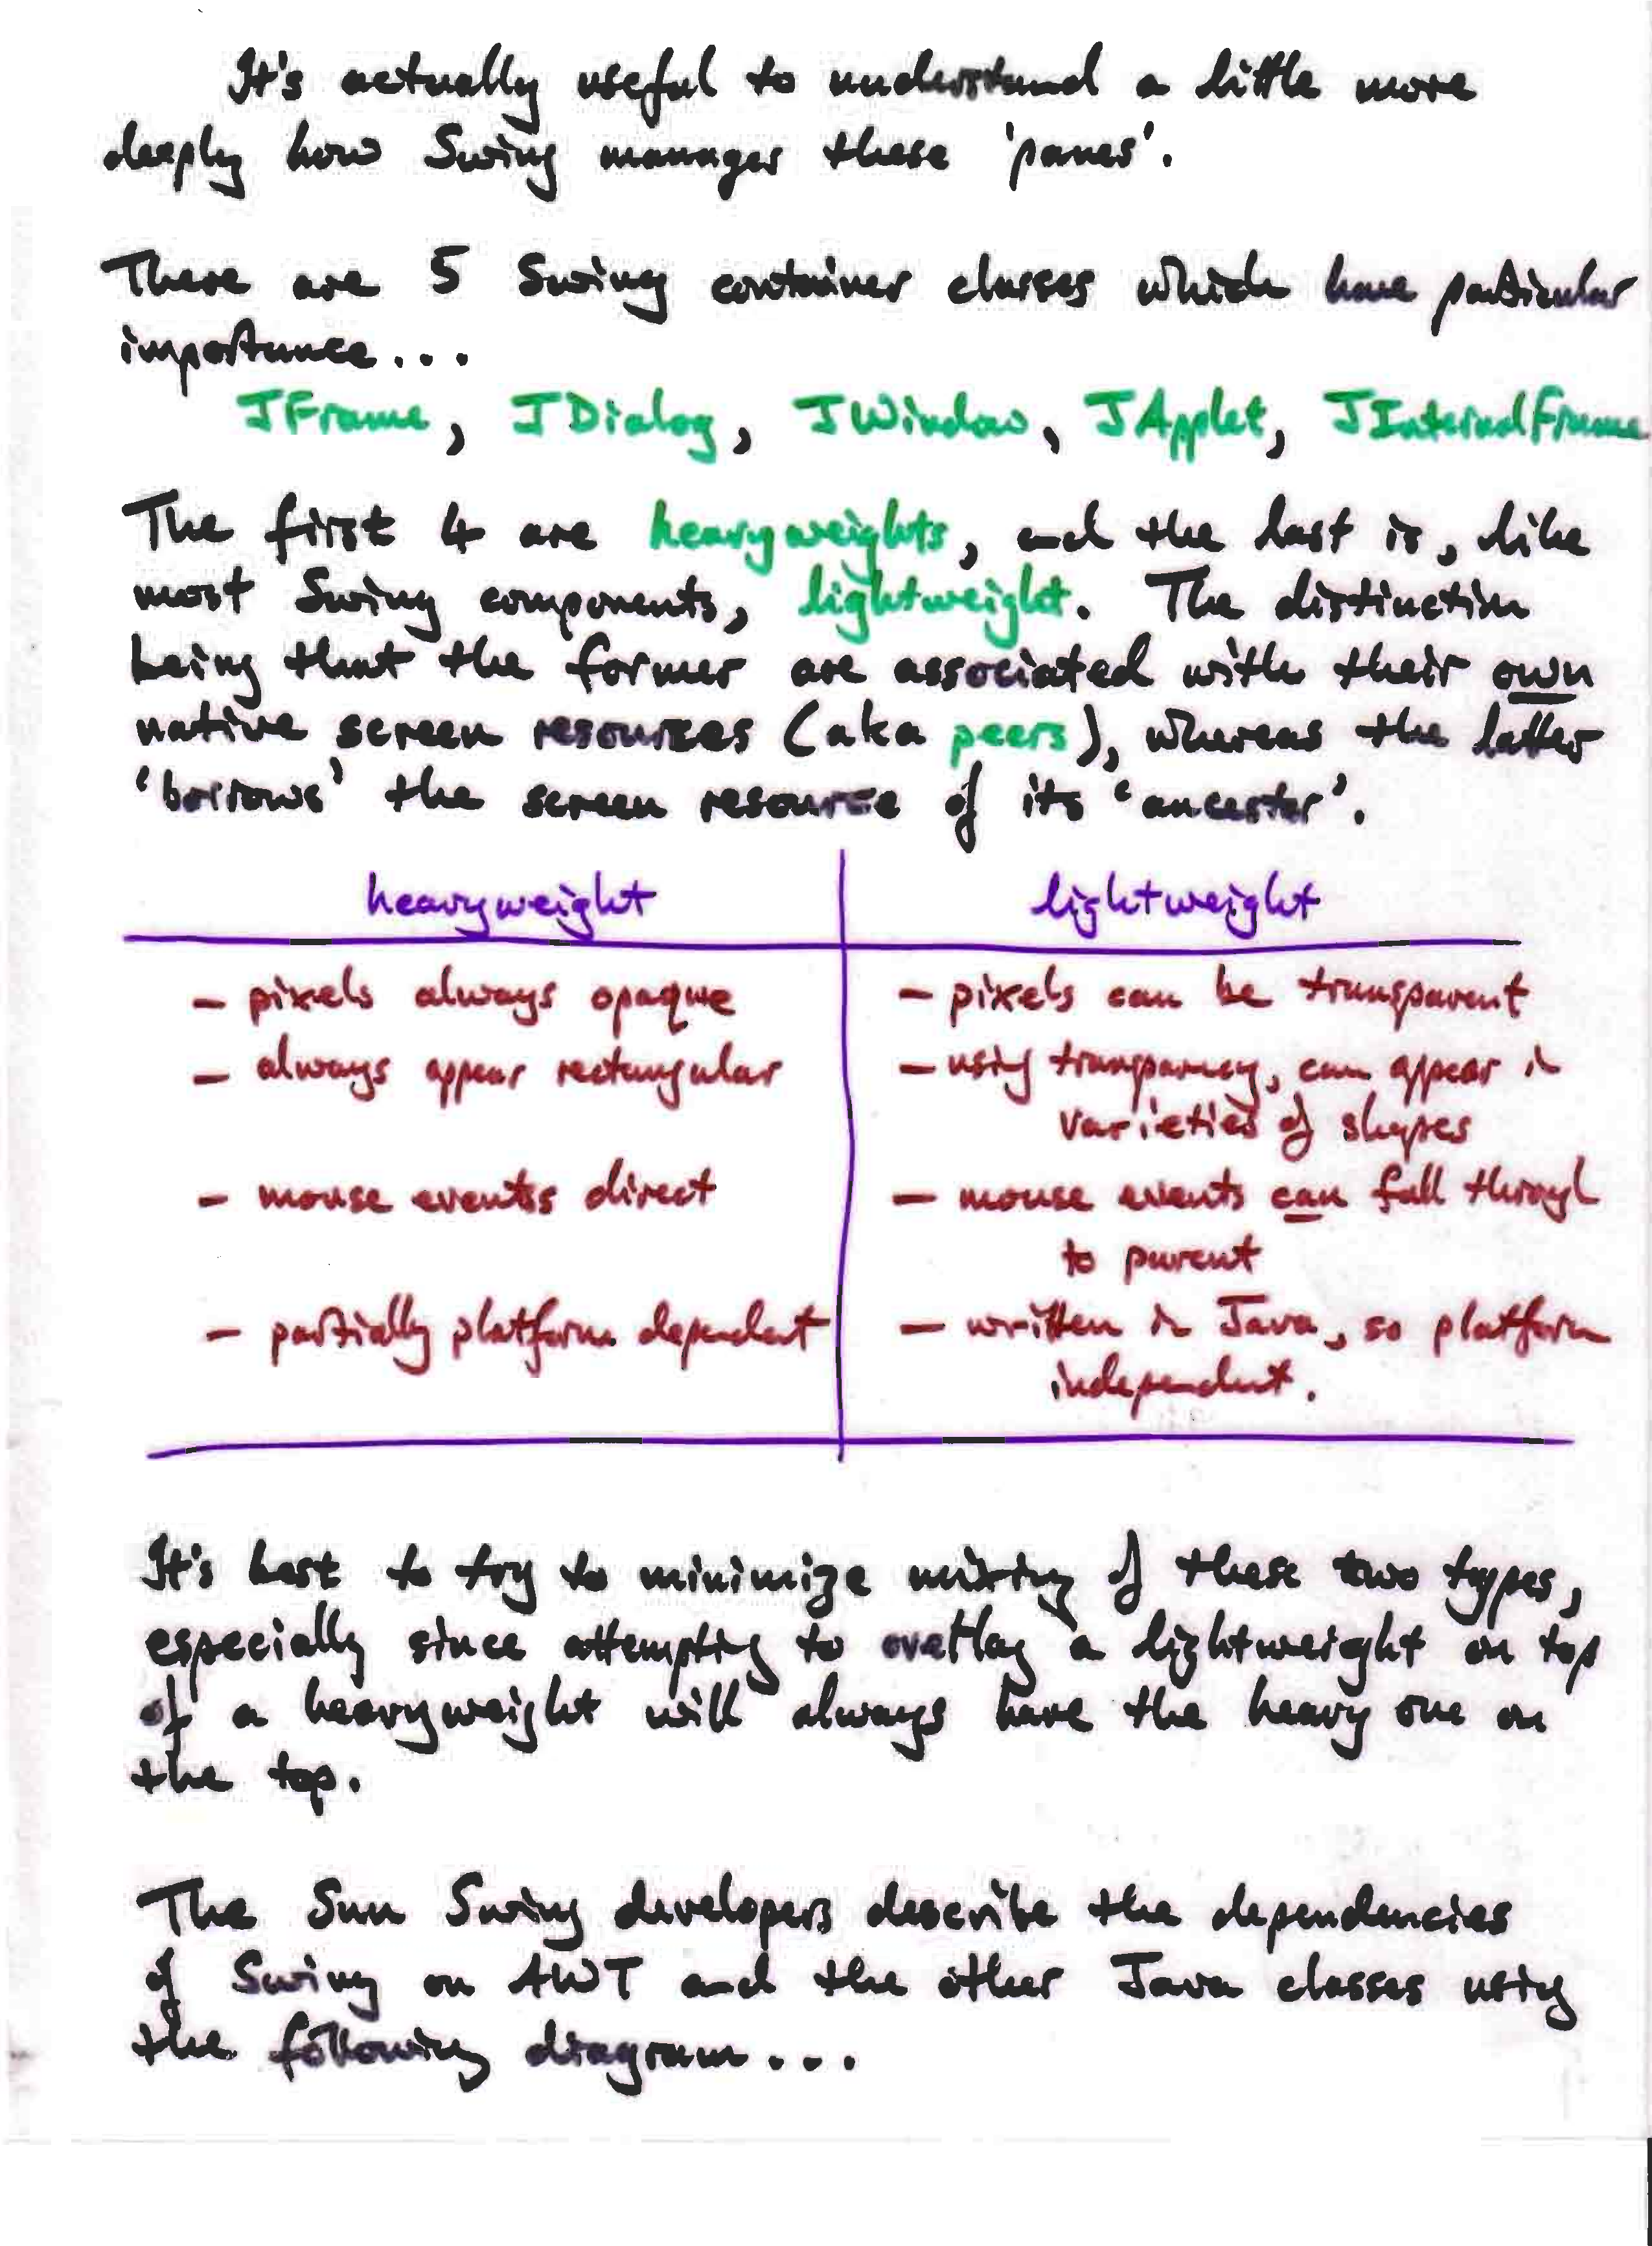 It's actually useful to understand a little more
deeply how Swing manages these 'panes'.
There are 5 Swing container classes which have particular
importance...
JFrame, JDialog, JWindow, JApplet, JInternalFrame
The first 4 are heavyweights, and the last is, like
most Swing components, lightweight. The distinction
being that the former are associated with their own
native screen resources (aka peers), whereas the latter
'borrows' the screen resource of its 'ancestor'.
heavyweight lightweight
- pixels always opaque - pixels can be transparent
- always appear rectangular - using transparency, can appear in
varieties of shapes
- mouse events direct - mouse events can fall through
to parent
- partially platform dependent - written in Java, so platform
independent.
It's best to try to minimize mixing of these two types,
especially since attempting to overlay a lightweight on top
of a heavyweight will always have the heavy one on
the top.
The Sun Swing developers describe the dependencies
of Swing on AWT and the other Java classes using
the following diagram...